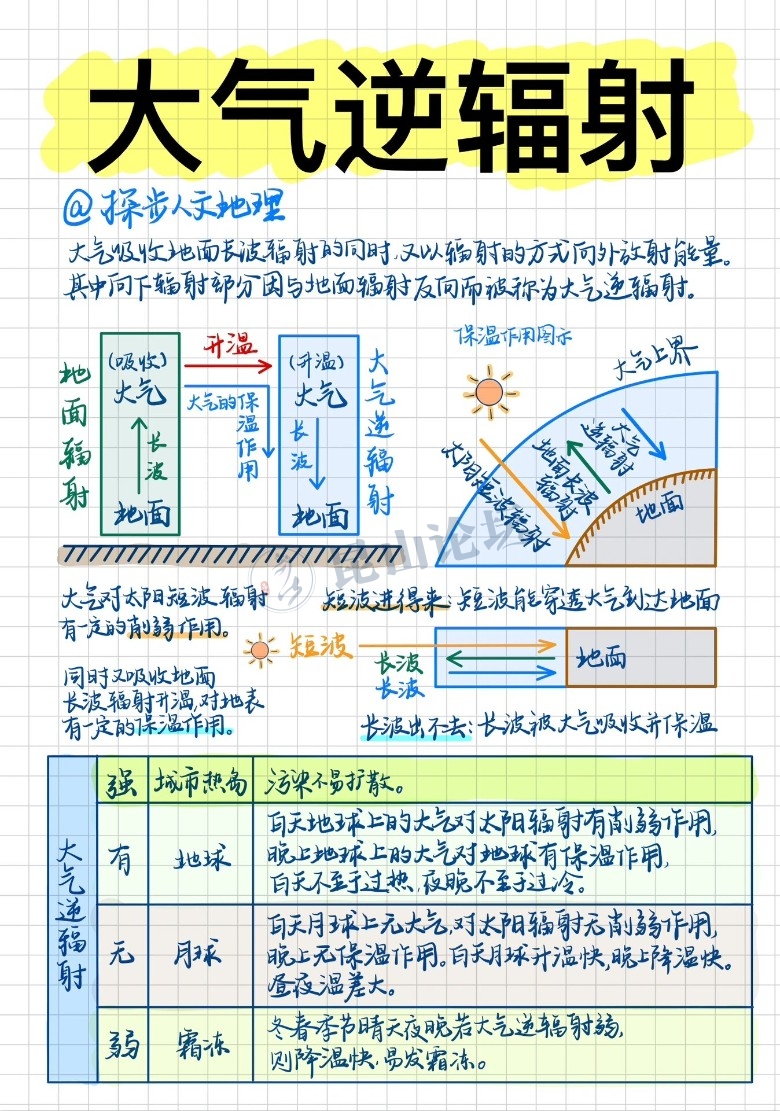 大气逆辐射
@探步人文地理
大气吸收地面长波辐射的同时,又以辐射的方式向外放射能量。
其中向下辐射部分因与地面辐射反向而被称为大气逆辐射。
地面辐射
(吸收)
大气
长波
地面
升温
大气的保温作用
(升温)
大气
长波
地面
大气逆辐射
保温作用图示
大气上界
太阳短波辐射
地面长波辐射
大气逆辐射
地面
昆山论坛
大气对太阳短波辐射
有一定的削弱作用。
同时又吸收地面
长波辐射升温,对地表
有一定的保温作用。
短波进得来:短波能穿透大气到达地面
短波
长波
长波
地面
长波出不去:长波被大气吸收并保温
大气逆辐射
强 城市热岛 污染不易扩散。
有 地球
白天地球上的大气对太阳辐射有削弱作用,
晚上地球上的大气对地球有保温作用,
白天不至于过热,夜晚不至于过冷。
无 月球
白天月球上无大气,对太阳辐射无削弱作用,
晚上无保温作用。白天月球升温快,晚上降温快。
昼夜温差大。
弱 霜冻
冬春季节晴天夜晚若大气逆辐射弱,
则降温快,易发霜冻。